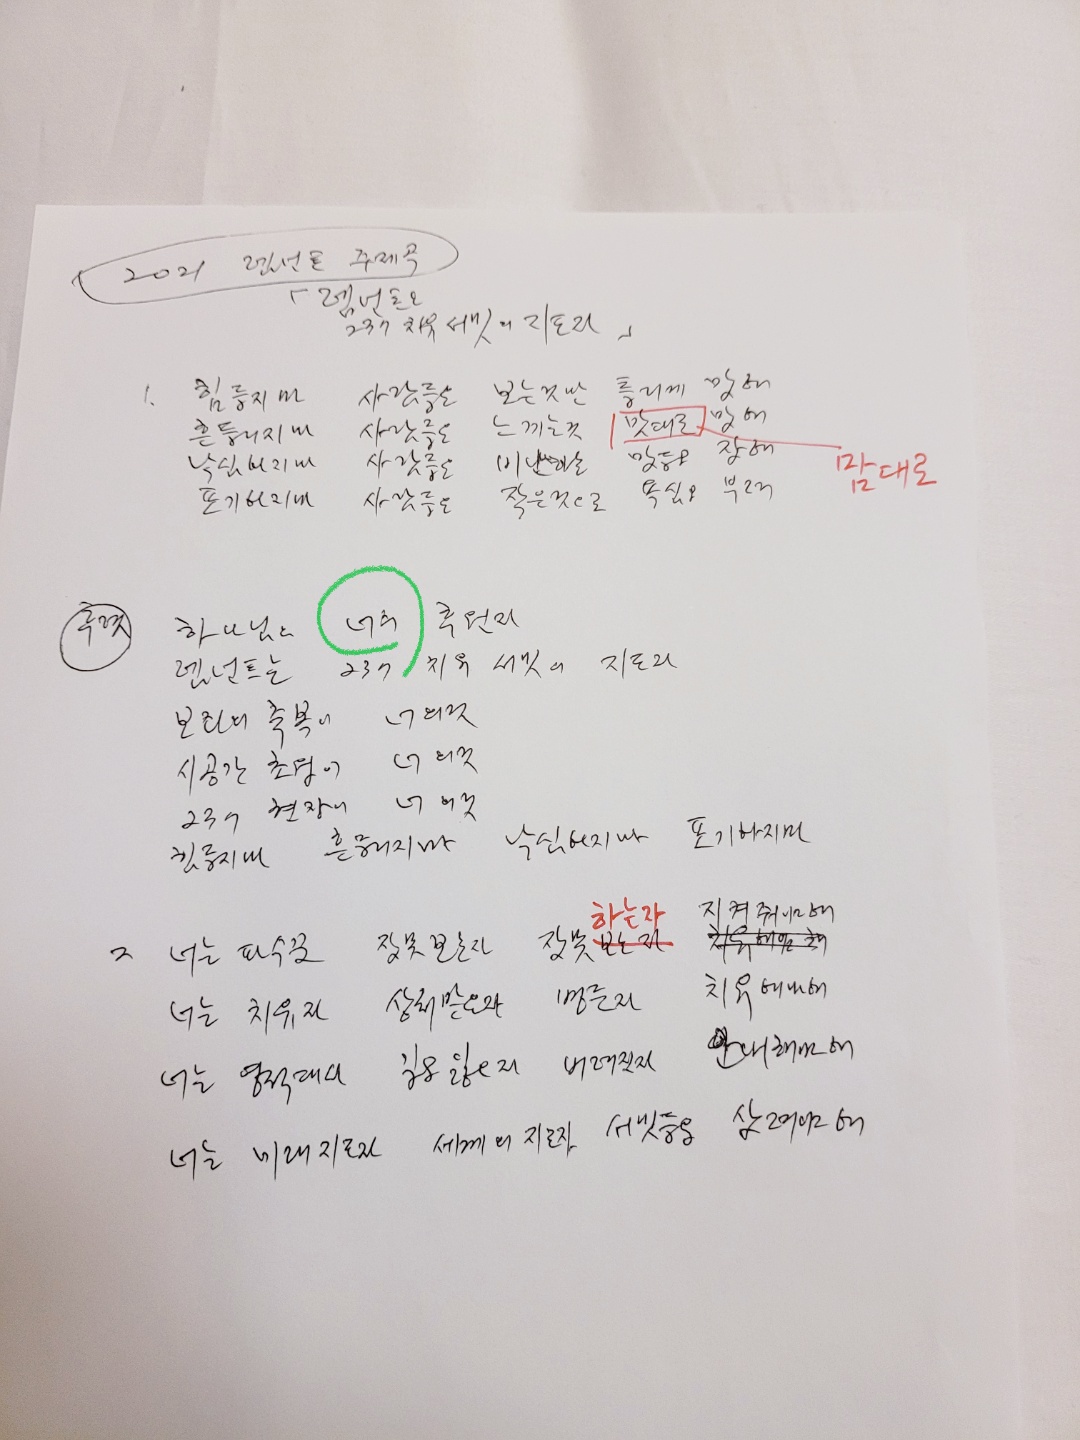 2021 렘넌트 주제곡
「렘넌트는
237 치유 서밋의 지도자」
1. 힘들지마 사람들은 보는것만 틀리게 말해
흔들리지마 사람들은 느끼는것 맛대로 말해
맘대로
낙심하지마 사람들은 말들은 잘해
포기하지마 사람들은 작은것으로 욕심을 부려
후렴 하나님은 너의 후원자
렘넌트는 237 치유 서밋의 지도자
보좌의 축복이 너의것
시공간 초월이 너의것
237 현장이 너의것
힘들지마 흔들리지마 낙심하지마 포기하지마
하는자 지켜줘야만해
2 너는 파수꾼 잘못보는자 잘못 보는자 치유해야만해
너는 치유자 상처받은자 병든자 치유해야해
너는 영적대사 길을 잃은자 버려진자 안내해야만해
너는 미래지도자 세계의 지도자 서밋들을 살려야만해